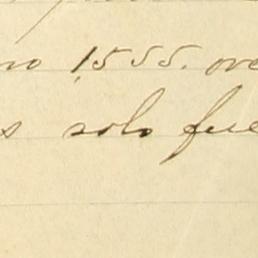 no 1555. ore
s solo fue